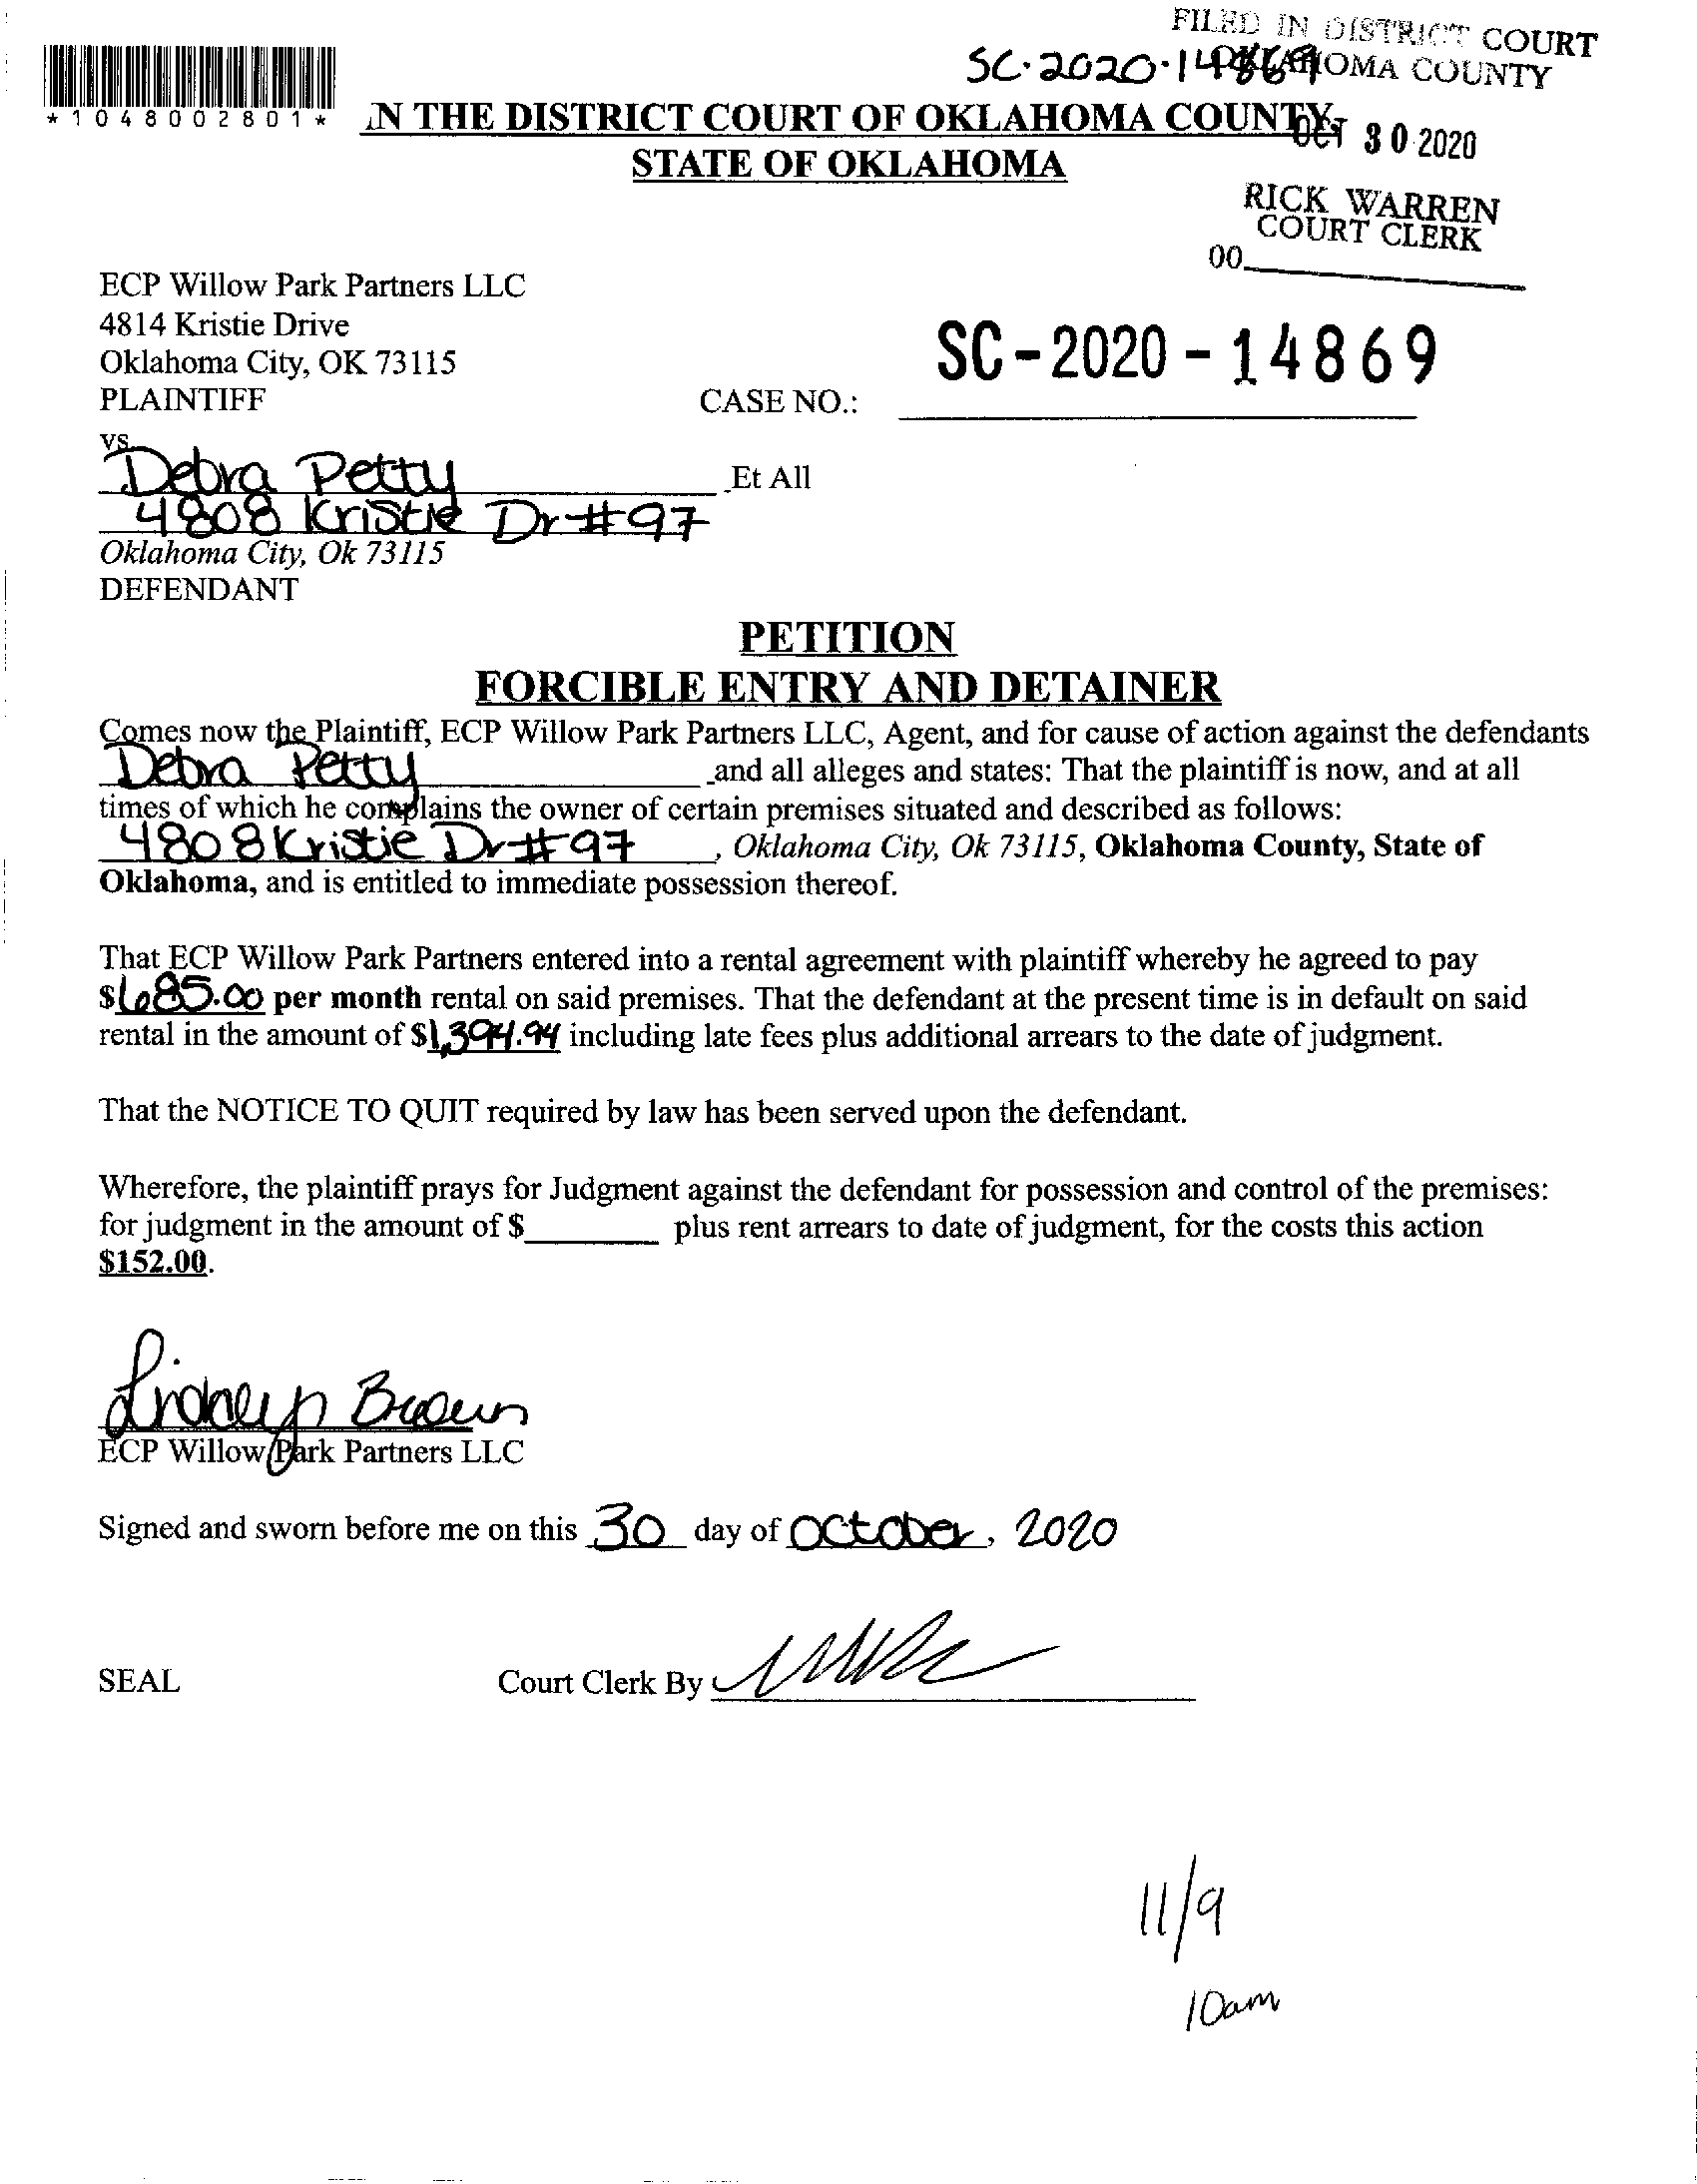 FILED IN DISTRICT COURT
OKLAHOMA COUNTY
SC-2020-14869
*1048002801*
IN THE DISTRICT COURT OF OKLAHOMA COUNTY
STATE OF OKLAHOMA
OCT 30 2020
RICK WARREN
COURT CLERK
00
ECP Willow Park Partners LLC
4814 Kristie Drive
Oklahoma City, OK 73115
PLAINTIFF
SC-2020-14869
CASE NO.:
vs.
Debra Petty Et All
4808 Kristie Dr #97
Oklahoma City, Ok 73115
DEFENDANT
PETITION
FORCIBLE ENTRY AND DETAINER
Comes now the Plaintiff, ECP Willow Park Partners LLC, Agent, and for cause of action against the defendants
Debra Petty and all alleges and states: That the plaintiff is now, and at all
times of which he complains the owner of certain premises situated and described as follows:
4808 Kristie Dr #97, Oklahoma City, Ok 73115, Oklahoma County, State of
Oklahoma, and is entitled to immediate possession thereof.
That ECP Willow Park Partners entered into a rental agreement with plaintiff whereby he agreed to pay
$685.00 per month rental on said premises. That the defendant at the present time is in default on said
rental in the amount of $1,394.94 including late fees plus additional arrears to the date of judgment.
That the NOTICE TO QUIT required by law has been served upon the defendant.
Wherefore, the plaintiff prays for Judgment against the defendant for possession and control of the premises:
for judgment in the amount of $________ plus rent arrears to date of judgment, for the costs this action
$152.00.
Lindsey Brown
ECP Willow Park Partners LLC
Signed and sworn before me on this 30 day of October, 2020
SEAL Court Clerk By
11/9
10am